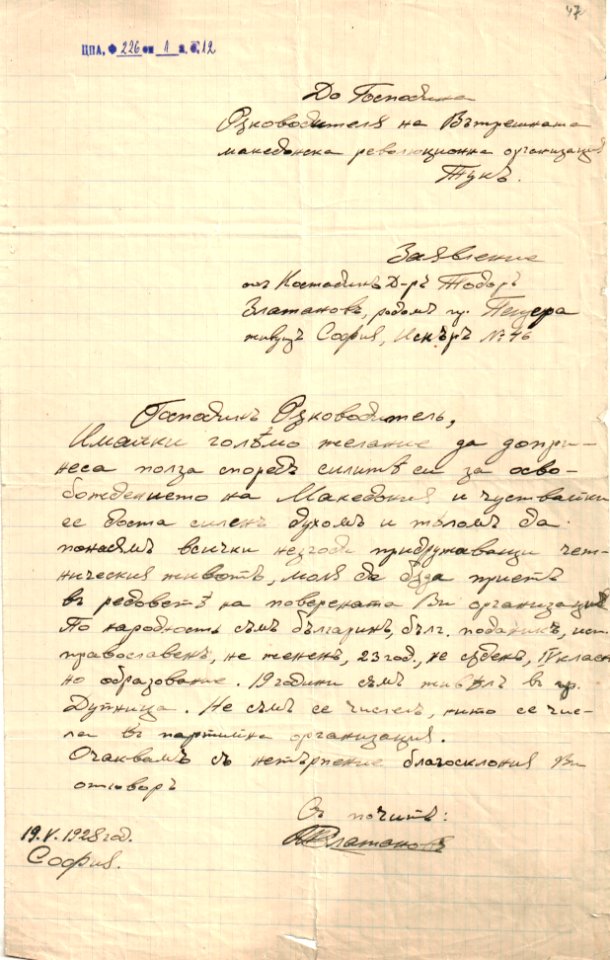 47
ЦПА, Ф 226 оп 1 а.е. 12
До Господина
Рѫководителя на Вѫтрешната
македонска революционна организация
Тукъ.
Заявление
отъ Костадинъ Д-ръ Тодоръ
Златановъ, родомъ гр. Пещера
живущъ София, Искъръ № 46
Господинъ Рѫководитель,
Имайки голѣмо желание да допри-
неса полза споредъ силитѣ си за осво-
бождението на Македония и чуствайки
се доста силенъ духомъ и тѣломъ да
понасямъ всички незгоди придружаващи чет-
ническия животъ, моля да бѫда приетъ
въ редоветѣ на поверената Ви организация
По народность съмъ българинъ, бълг. поданикъ, ист.
православенъ, не жененъ, 23 год., не сѫденъ, IV класн
но образование. 19 години съмъ живѣлъ въ гр.
Дупница. Не съмъ се числелъ, нито се чис-
ля въ партийна организация.
Очаквамъ съ нетърпение благосклония Ви
отговоръ
Съ почитъ:
КЗлатановъ
19.V.1928 год.
София.